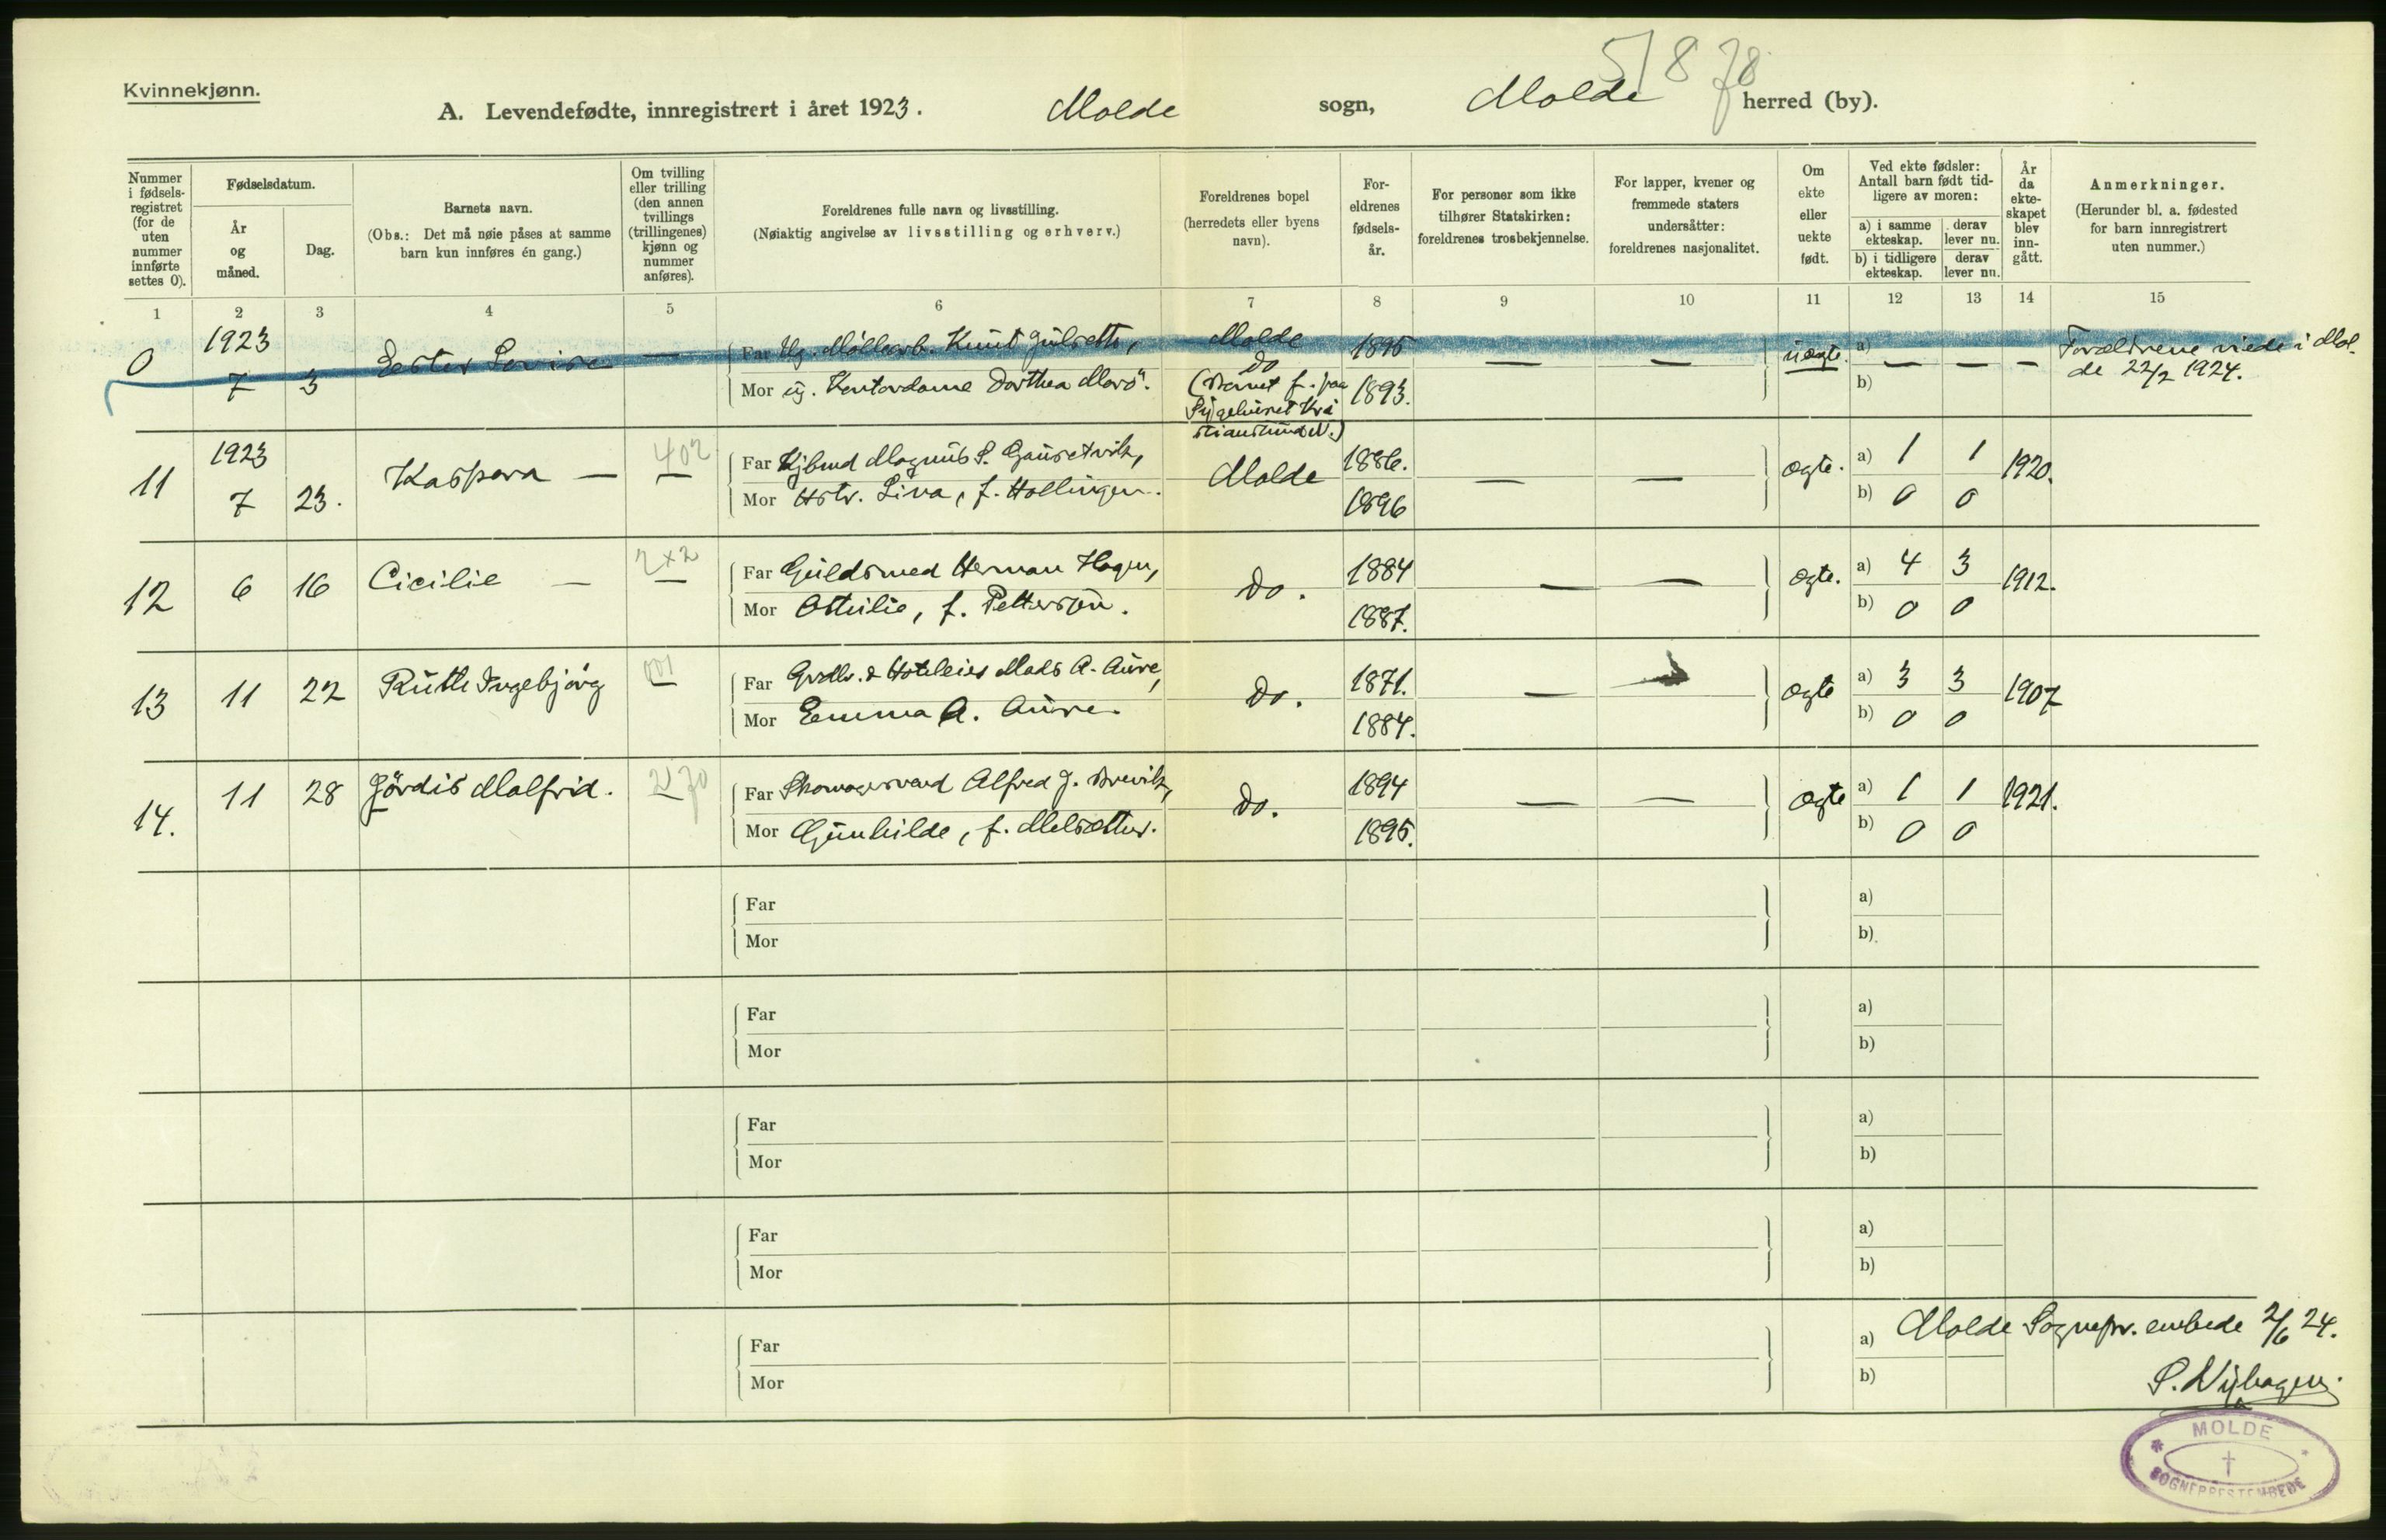 5 8 78
Kvinnekjønn.
A. Levendefødte, innregistrert i året 1923. Molde sogn, Molde herred (by).
Nummer i fødsels-registret (for de uten nummer innførte settes 0).
Fødselsdatum.
År og måned.
Dag.
Barnets navn.
(Obs.: Det må nøie påses at samme barn kun innføres én gang.)
Om tvilling eller trilling (den annen tvillings (trillingenes) kjønn og nummer anføres).
Foreldrenes fulle navn og livsstilling.
(Nøiaktig angivelse av livsstilling og erhverv.)
Foreldrenes bopel (herredets eller byens navn).
For-eldrenes fødsels-år.
For personer som ikke tilhører Statskirken: foreldrenes trosbekjennelse.
For lapper, kvener og fremmede staters undersåtter: foreldrenes nasjonalitet.
Om ekte eller uekte født.
Ved ekte fødsler: Antall barn født tid-ligere av moren:
a) i samme ekteskap. derav lever nu.
b) i tidligere ekteskap. derav lever nu.
År da ekte-skapet blev inn-gått.
Anmerkninger.
(Herunder bl. a. fødested for barn innregistrert uten nummer.)
1 2 3 4 5 6 7 8 9 10 11 12 13 14 15
0 1923 7 3 Ester Lovise —
Far Ug. Møllearb. Knut Gulseth, Molde 1895
Mor ug. Kontordame Dorthea Mors". Do (Barnet f. paa Sygehuset Kristiansund N.) 1893.
— — uægte. a) — — —
b)
Forældrene viede i Molde 22/2 1924.
11 1923 7 23. Kaspara — 402 —
Far Kjbmd Magnus S. Gausetvik, Molde 1886.
Mor Hstr. Lina, f. Hollingen. 1896
— — ægte. a) 1 1 1920.
b) 0 0
12 6 16 Cicilie — 2x2 —
Far Guldsmed Herman Hagen, Do. 1884
Mor Othilie, f. Petterson. 1887.
— — ægte. a) 4 3 1912.
b) 0 0
13 11 22 Ruth Ingebjørg —
Far Grdbr. & Hoteleier Mads A. Aure, Do. 1871.
Mor Emma A. Aure. 1884.
— — ægte a) 3 3 1907
b) 0 0
14. 11 28 Jördis Malfrid. —
Far Skomagersvend Alfred J. Brevik, Do. 1894
Mor Gunhilde, f. Melsætter. 1895.
— — ægte a) 1 1 1921.
b) 0 0
Far a)
Mor b)
Far a)
Mor b)
Far a)
Mor b)
Far a)
Mor b)
Far a) Molde Sognepr. embede 2/6 24.
Mor b) S. Nyhagen
MOLDE
SOGNEPRESTEMBEDE